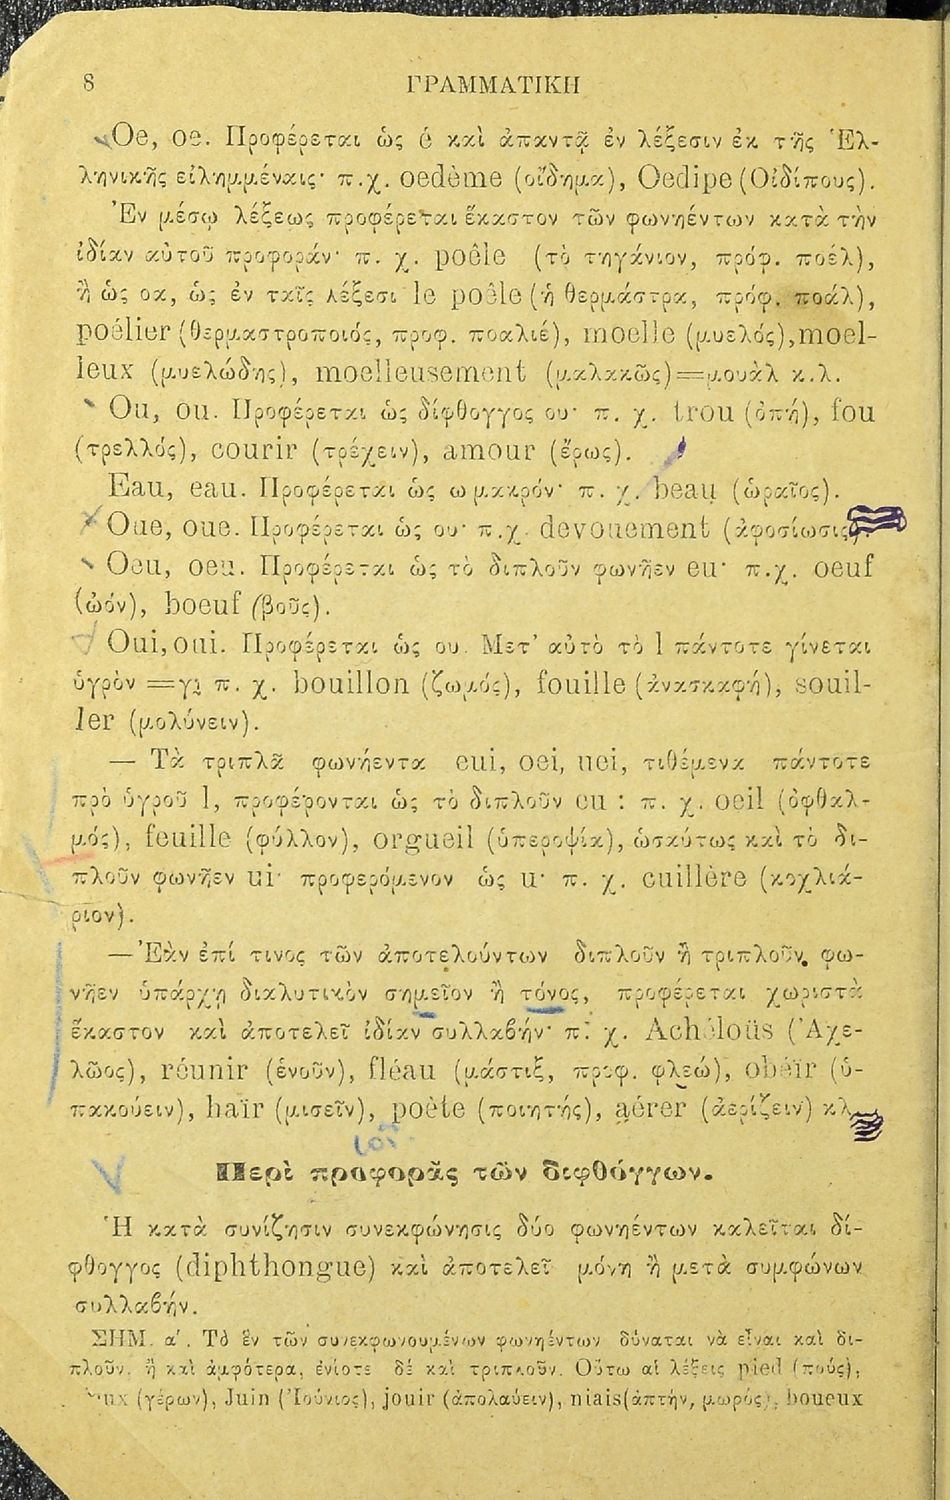 8 ΓΡΑΜΜΑΤΙΚΗ
Oe, oe. Προφέρεται ὡς é καὶ ἀπαντᾷ ἐν λέξεσιν ἐκ τῆς Ἑλ-
ληνικῆς εἰλημμέναις· π.χ. oedème (οἴδημα), Oedipe (Οἰδίπους).
Ἐν μέσῳ λέξεως προφέρεται ἕκαστον τῶν φωνηέντων κατὰ τὴν
ἰδίαν αὐτοῦ προφοράν· π. χ. poêle (τὸ τηγάνιον, πρόφ. ποέλ),
ἢ ὡς οα, ὡς ἐν ταῖς λέξεσι le poêle (ἡ θερμάστρα, πρόφ. ποάλ),
poêlier (θερμαστροποιός, προφ. ποαλιέ), moelle (μυελός), moel-
leux (μυελώδης), moelleusement (μαλακῶς)=μουὰλ κ.λ.
Ou, ou. Προφέρεται ὡς δίφθογγος ου· π. χ. trou (ὀπή), fou
(τρελλός), courir (τρέχειν), amour (ἔρως).
Eau, eau. Προφέρεται ὡς ω μακρόν· π. χ. beau (ὡραῖος).
Oue, oue. Προφέρεται ὡς ου· π.χ. devouement (ἀφοσίωσις).
Oeu, oeu. Προφέρεται ὡς τὸ διπλοῦν φωνῆεν eu· π.χ. oeuf
(ὠόν), boeuf (βοῦς).
Oui, oui. Προφέρεται ὡς ου. Μετ' αὐτὸ τὸ l πάντοτε γίνεται
ὑγρὸν =γι π. χ. bouillon (ζωμός), fouille (ἀνασκαφή), souil-
ler (μολύνειν).
— Τὰ τριπλᾶ φωνήεντα eui, oei, uei, τιθέμενα πάντοτε
πρὸ ὑγροῦ l, προφέρονται ὡς τὸ διπλοῦν eu : π. χ. oeil (ὀφθαλ-
μός), feuille (φύλλον), orgueil (ὑπεροψία), ὡσαύτως καὶ τὸ δι-
πλοῦν φωνῆεν ui· προφερόμενον ὡς u· π. χ. cuillère (κοχλιά-
ριον).
— Ἐὰν ἐπί τινος τῶν ἀποτελούντων διπλοῦν ἢ τριπλοῦν φω-
νῆεν ὑπάρχῃ διαλυτικὸν σημεῖον ἢ τόνος, προφέρεται χωριστὰ
ἕκαστον καὶ ἀποτελεῖ ἰδίαν συλλαβήν· π. χ. Achéloüs (Ἀχε-
λῶος), réunir (ἑνοῦν), fléau (μάστιξ, προφ. φλεώ), obéir (ὑ-
πακούειν), haïr (μισεῖν), poète (ποιητής), aérer (ἀερίζειν) κλ
Περὶ προφορᾶς τῶν διφθόγγων.
Ἡ κατὰ συνίζησιν συνεκφώνησις δύο φωνηέντων καλεῖται δί-
φθογγος (diphthongue) καὶ ἀποτελεῖ μόνη ἢ μετὰ συμφώνων
συλλαβήν.
ΣΗΜ. α'. Τὸ ἓν τῶν συνεκφωνουμένων φωνηέντων δύναται νὰ εἶναι καὶ δι-
πλοῦν, ἢ καὶ ἀμφότερα, ἐνίοτε δὲ καὶ τριπλοῦν. Οὕτω αἱ λέξεις pied (πούς),
(γέρων), Juin (Ἰούνιος), jouir (ἀπολαύειν), niais (ἀπτήν, μωρός), boueux